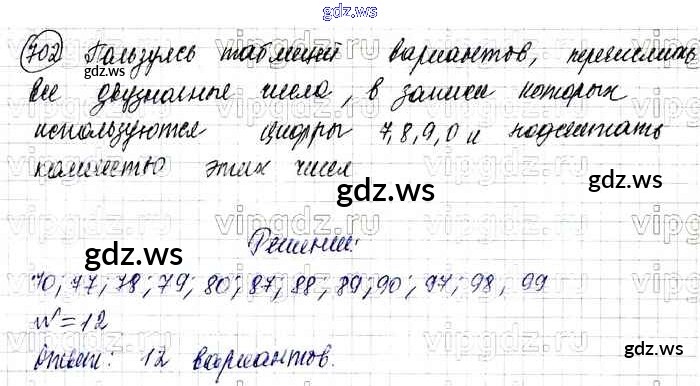 gdz.ws
702 Пользуясь таблицей вариантов, перечислить
все двузначные числа, в записи которых
используются цифры 7,8,9,0 и подсчитать
количество этих чисел
Решение:
70; 77; 78; 79; 80; 87; 88; 89; 90; 97; 98; 99
N=12
Ответ: 12 вариантов.
gdz.ws
gdz.ws
gdz.ws
gdz.ws
gdz.ws